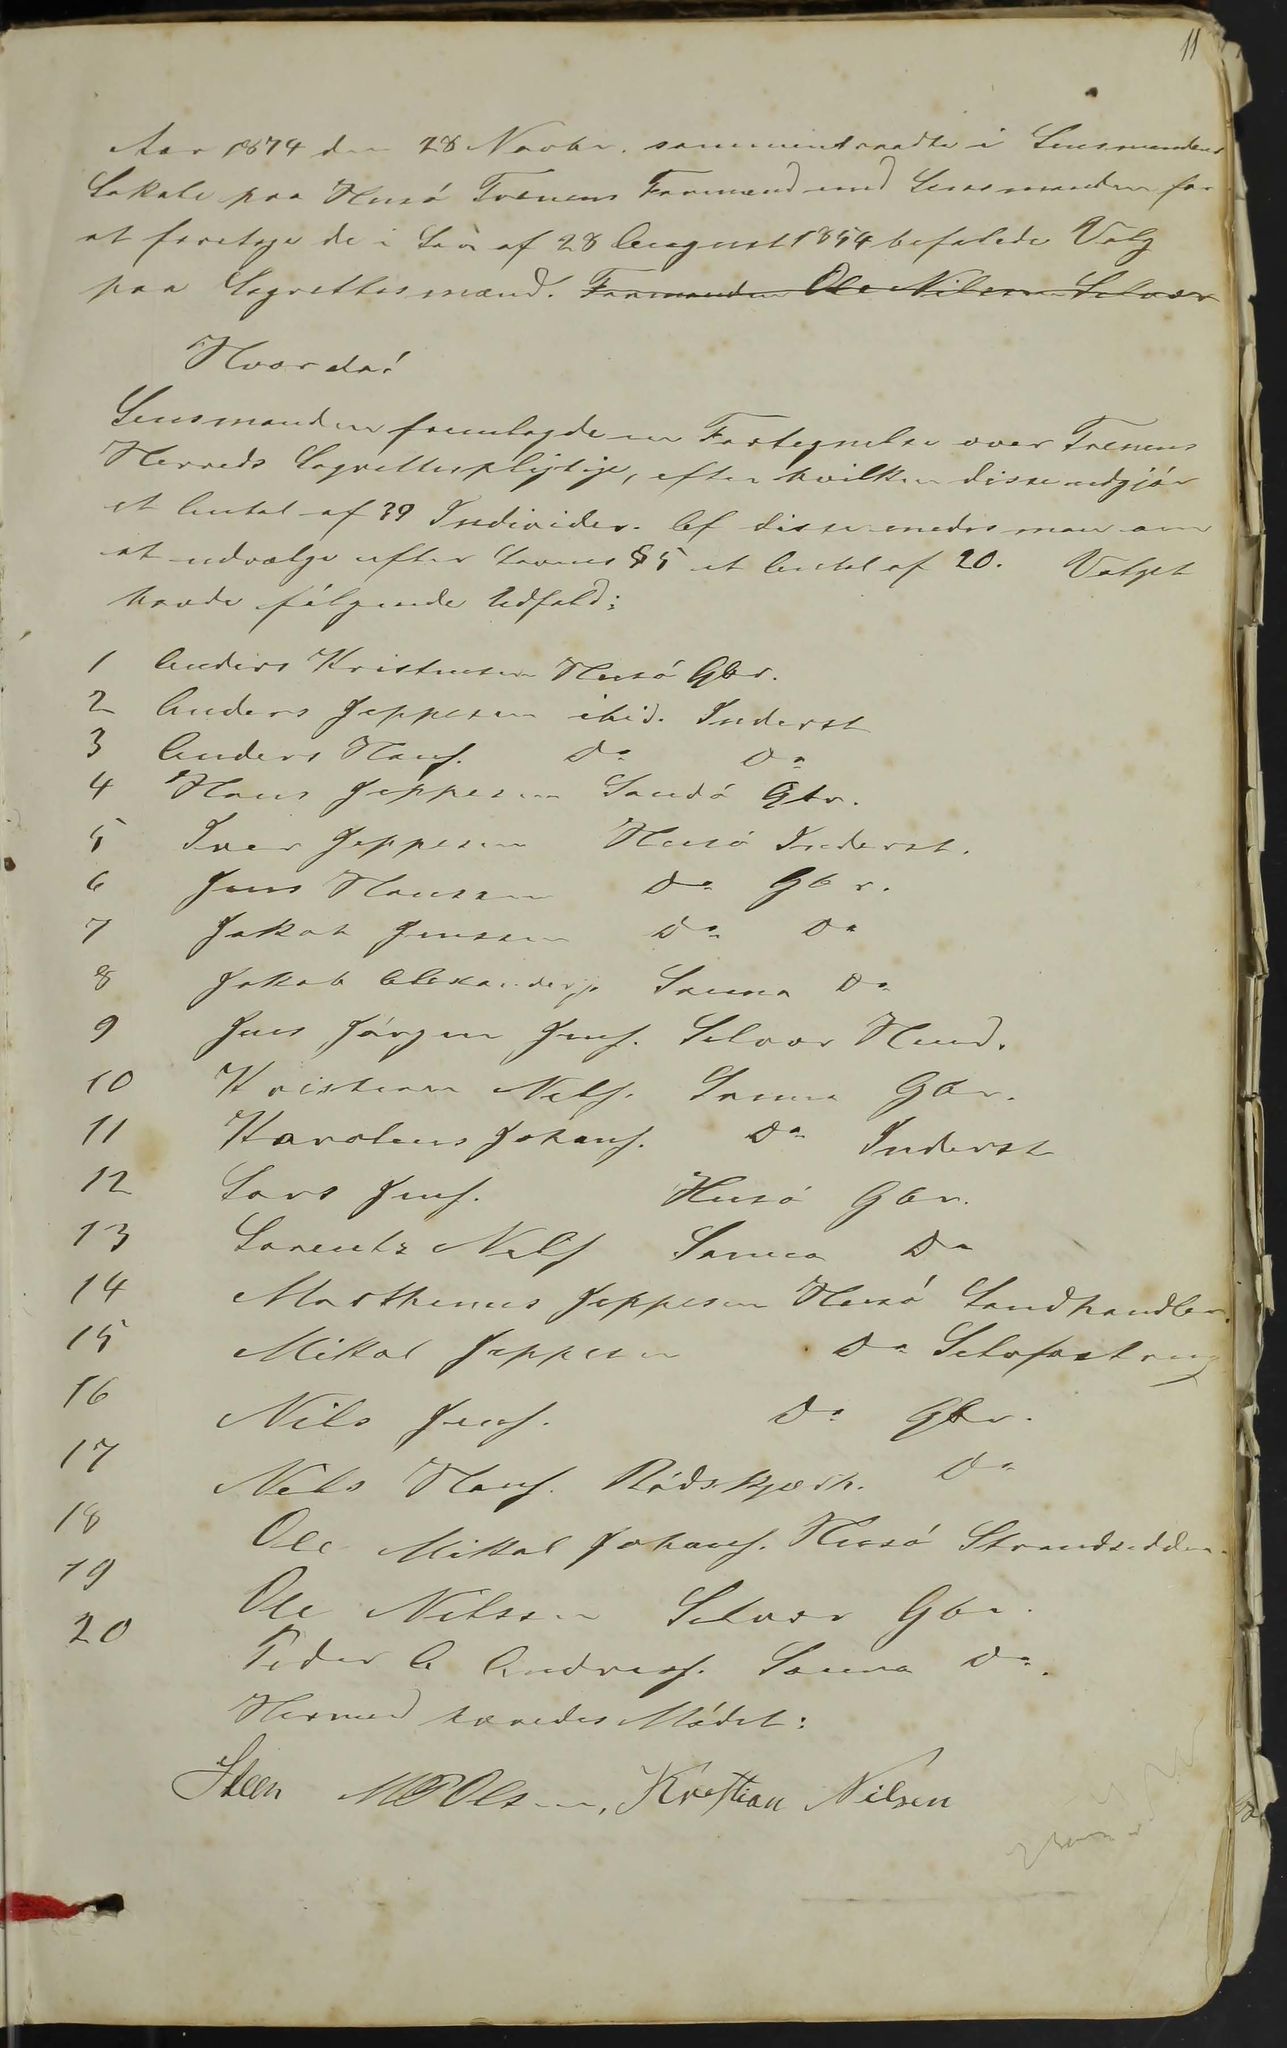 11
Aar 1874 den 28 Novbr. sammentraadte i Lensmandens
Lokale paa Husö Trænens Formænd med Lensmanden for
at foretage de i Lov af 28 August 1854 befalede Valg
paa Lagrettesmænd. Formanden Ole Nilsen Selvær
Hvorda!
Lensmanden fremlagde en Fortegnelse over Trænens
Herreds Lagrettespligtige, efter hvilken disse udgjör
et Antal af 39 Individer. Af disse enedes man om
at udvælge efter Lovens § 5 et Antal af 20. Valget
havde fölgende Udfald:
1 Anders Kristensen Husö Gbr.
2 Anders Jeppesen ibid. Inderst
3 Anders Hans. Do Do
4 Hans Jeppesen Sandö Gbr.
5 Iver Jeppesen Husö Inderst.
6 Jens Hanssen Do Gbr.
7 Jakob Jenssen Do Do
8 Jakob Alexanders. Sanna Do
9 Jens Jörgen Jens. Selvær Husmd.
10 Kristian Nils. Sanna Gbr.
11 Karolius Johans. Do Inderst
12 Lars Jens. Husö Gbr.
13 Lorentz Nils. Sanna Do
14 Marthinus Jeppesen Husö Landhandler.
15 Mikkal Jeppesen Do Selvfostring
16 Nils Jens. Do Gbr.
17 Nils Hans. Rödskjærh. Do
18 Ole Mikkal Johans. Husö Strandsidder.
19 Ole Nilssen Selvær Gbr.
20 Peder A Andreas. Sanna Do.
Hermed hævedes Mödet:
Steen M P Olsen, Kristian Nilsen